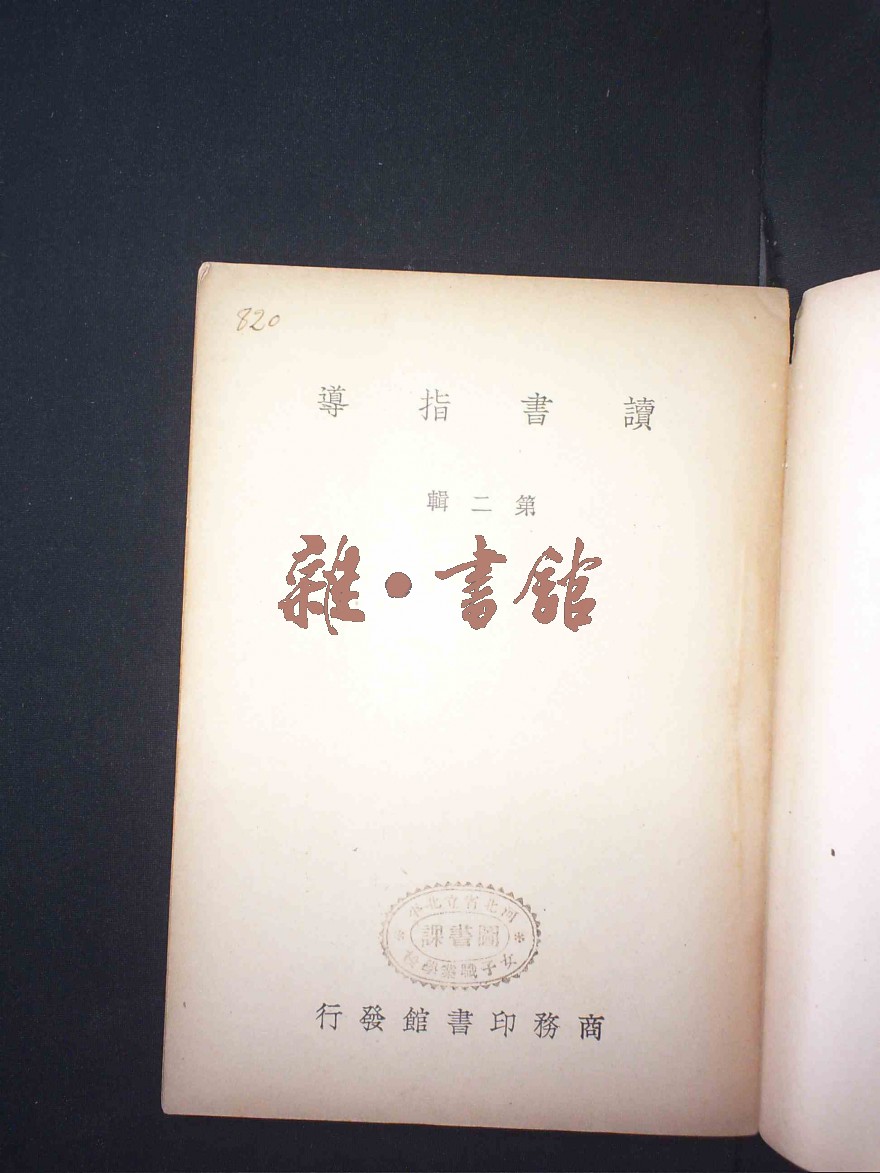 820
讀書指導
第二輯
雜·書館
河北省立北平
圖書課
女子職業學校
商務印書館發行